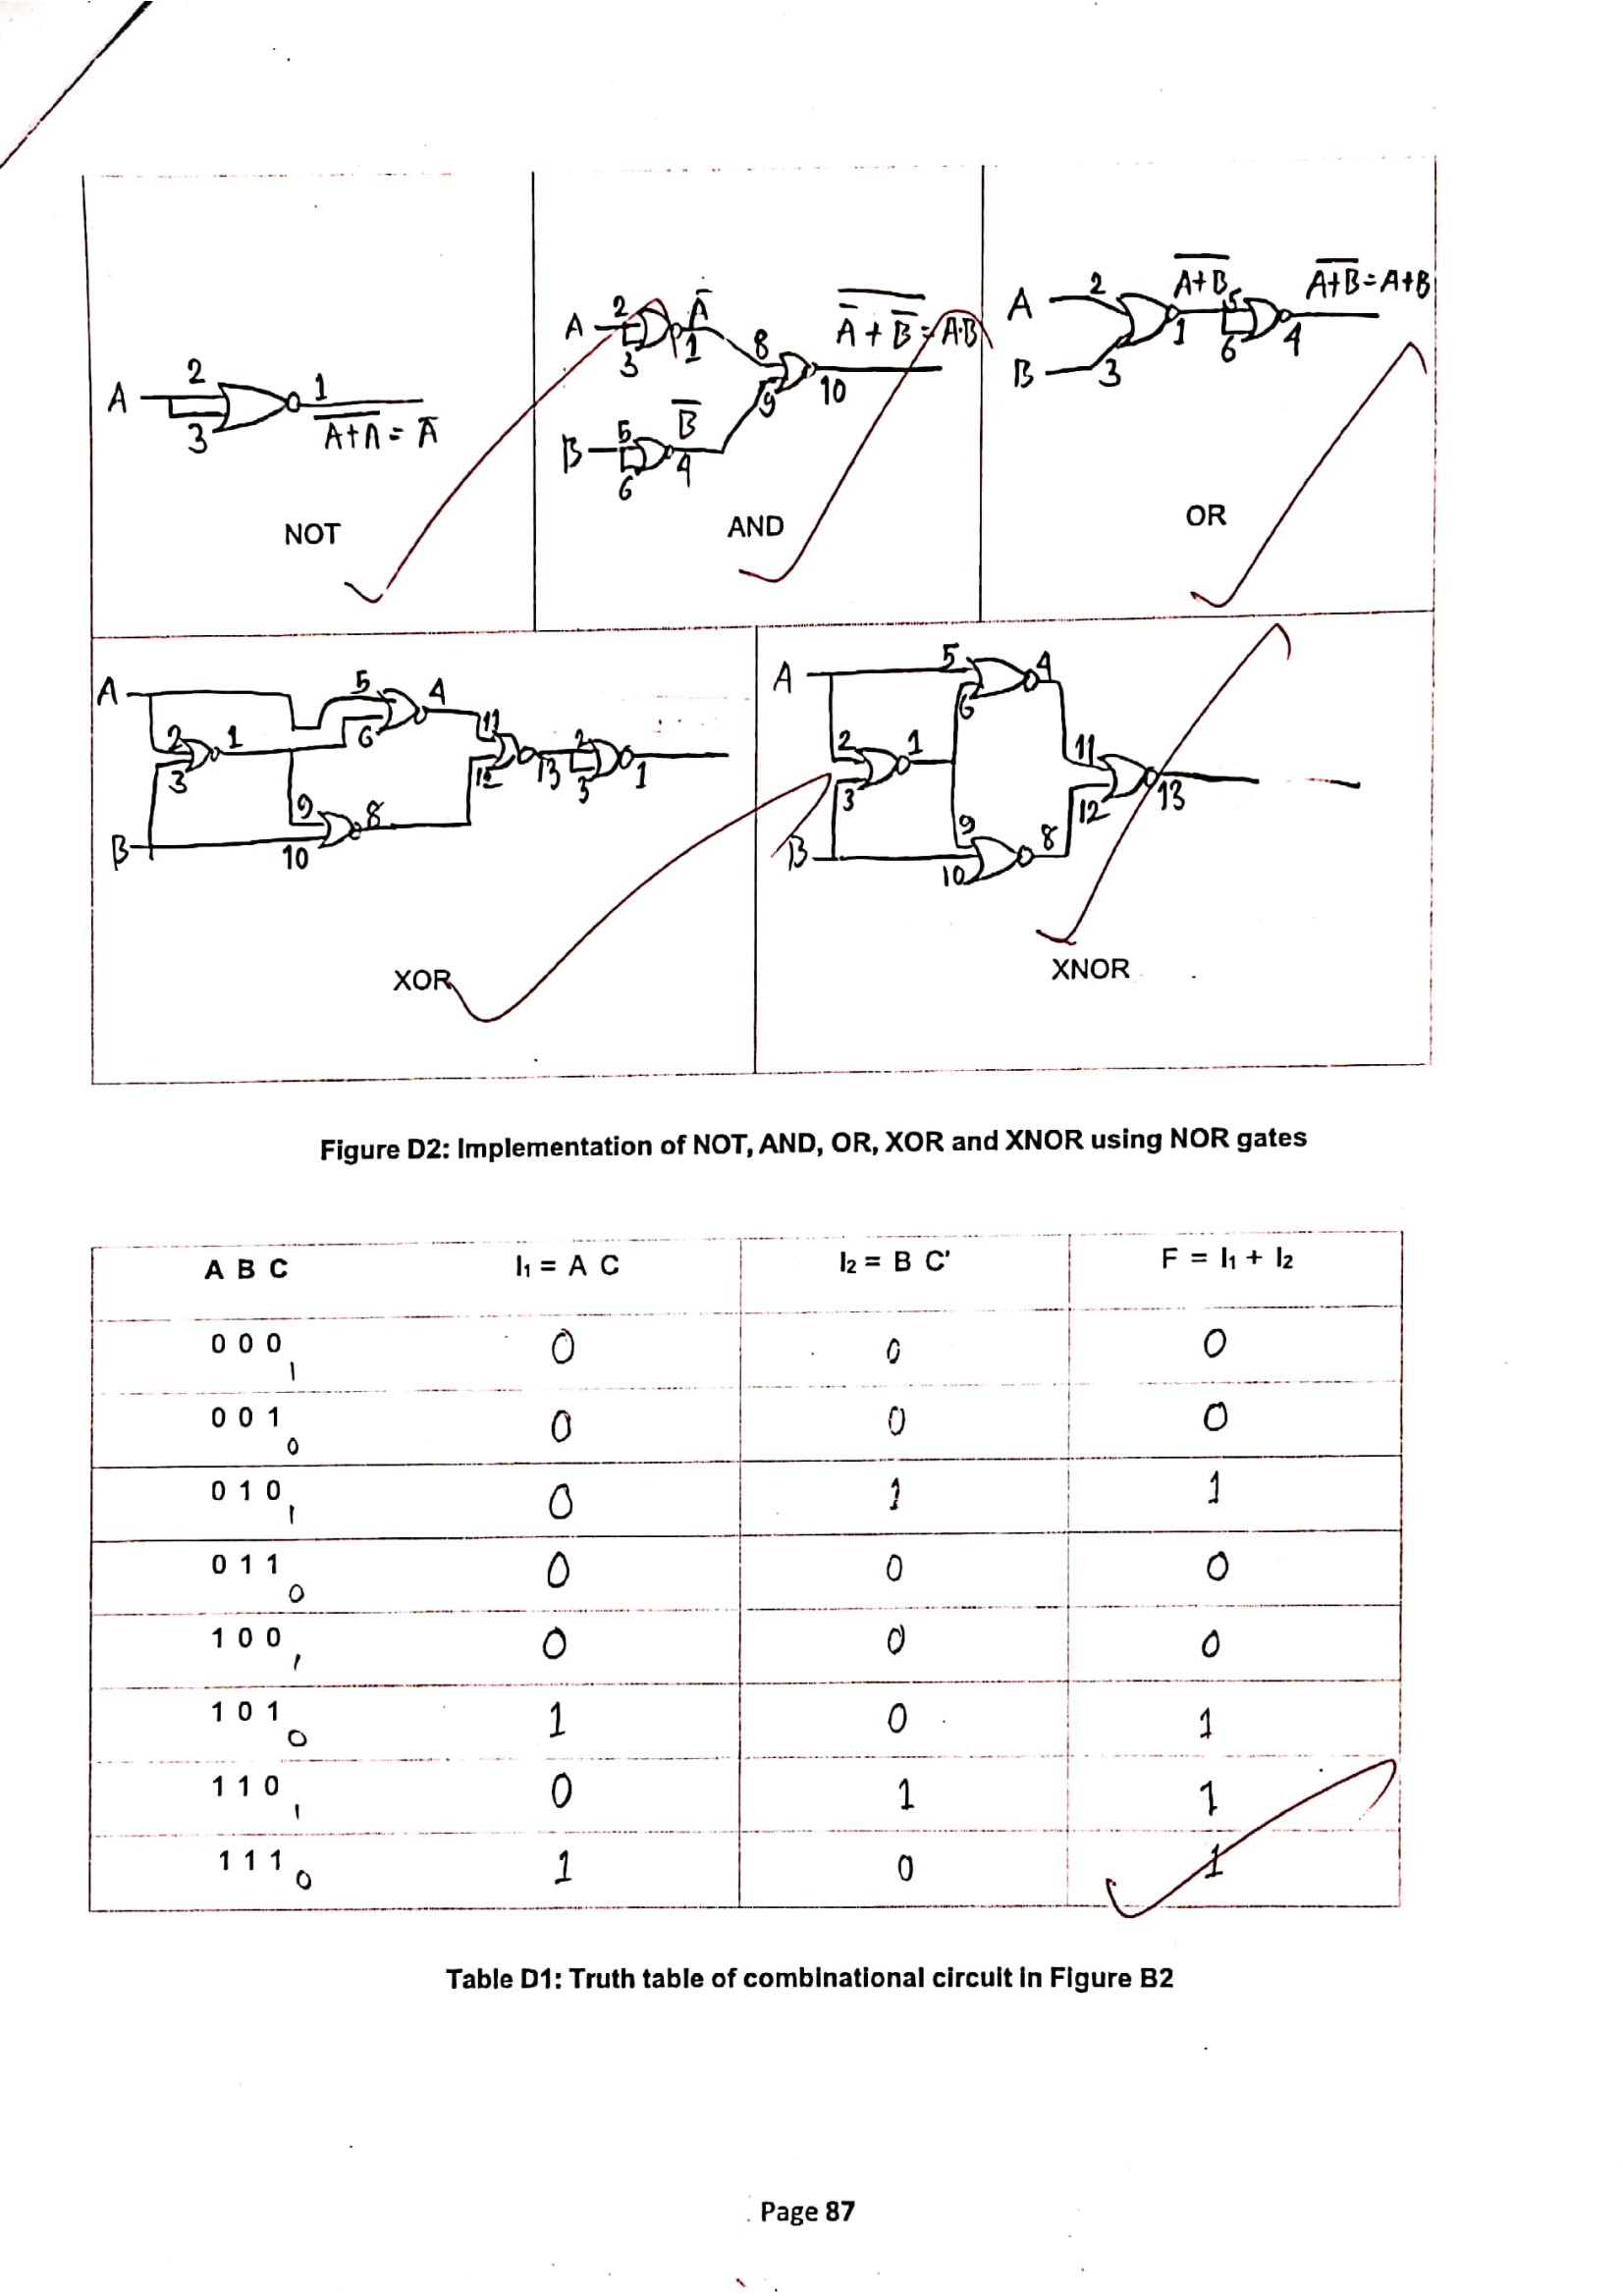 A 2 3 1 A+A = Ā
NOT
A 2 3 Ā 1 8 A̅ + B̅ = A·B
B 5 6 B̅ 4 9 10
AND
A 2 A+B 5 A+B = A+B
B 3 1 6 4
OR
A 5 4
2 1 6 11
3 12 13 2 3 1
9 8
B 10
XOR
A 5 4
6
2 1 11
3 12 13
9 8
B 10
XNOR
Figure D2: Implementation of NOT, AND, OR, XOR and XNOR using NOR gates
A B C I₁ = A C I₂ = B C' F = I₁ + I₂
0 0 0 1 0 0 0
0 0 1 0 0 0 0
0 1 0 1 0 1 1
0 1 1 0 0 0 0
1 0 0 1 0 0 0
1 0 1 0 1 0 1
1 1 0 1 0 1 1
1 1 1 0 1 0 1
Table D1: Truth table of combinational circuit in Figure B2
Page 87